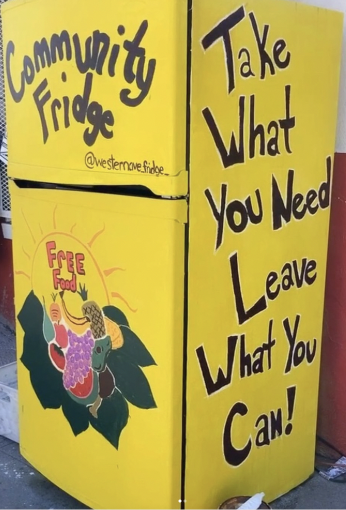 Community
Fridge
@westernave.fridge
FREE
Food
Take
What
You Need
Leave
What You
Can!